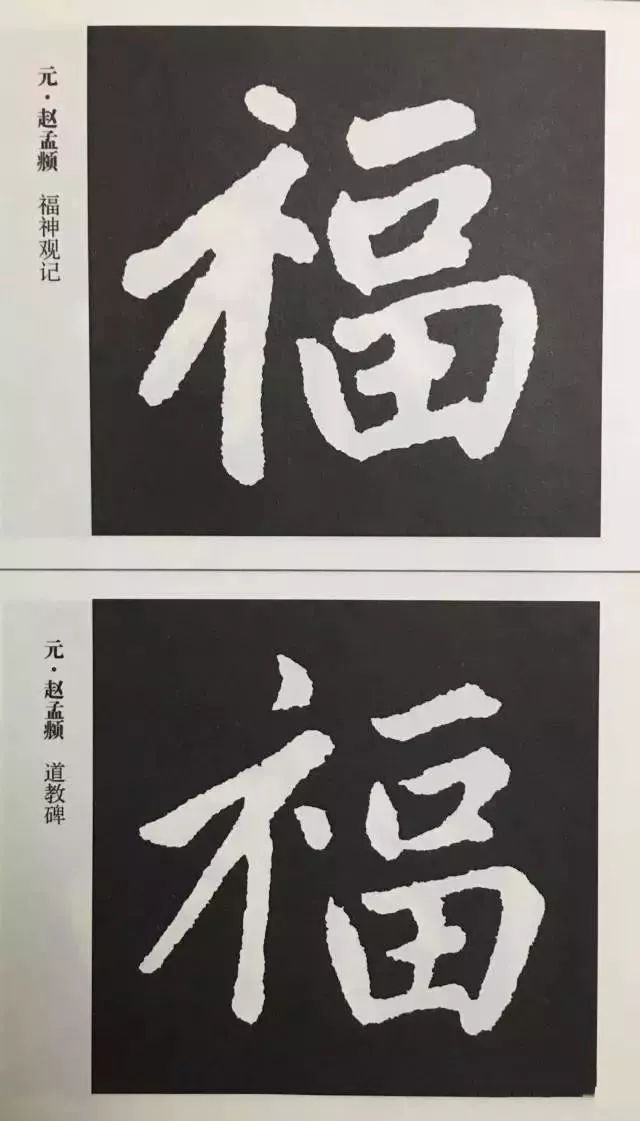 元·赵孟頫 福神观记
福
元·赵孟頫 道教碑
福